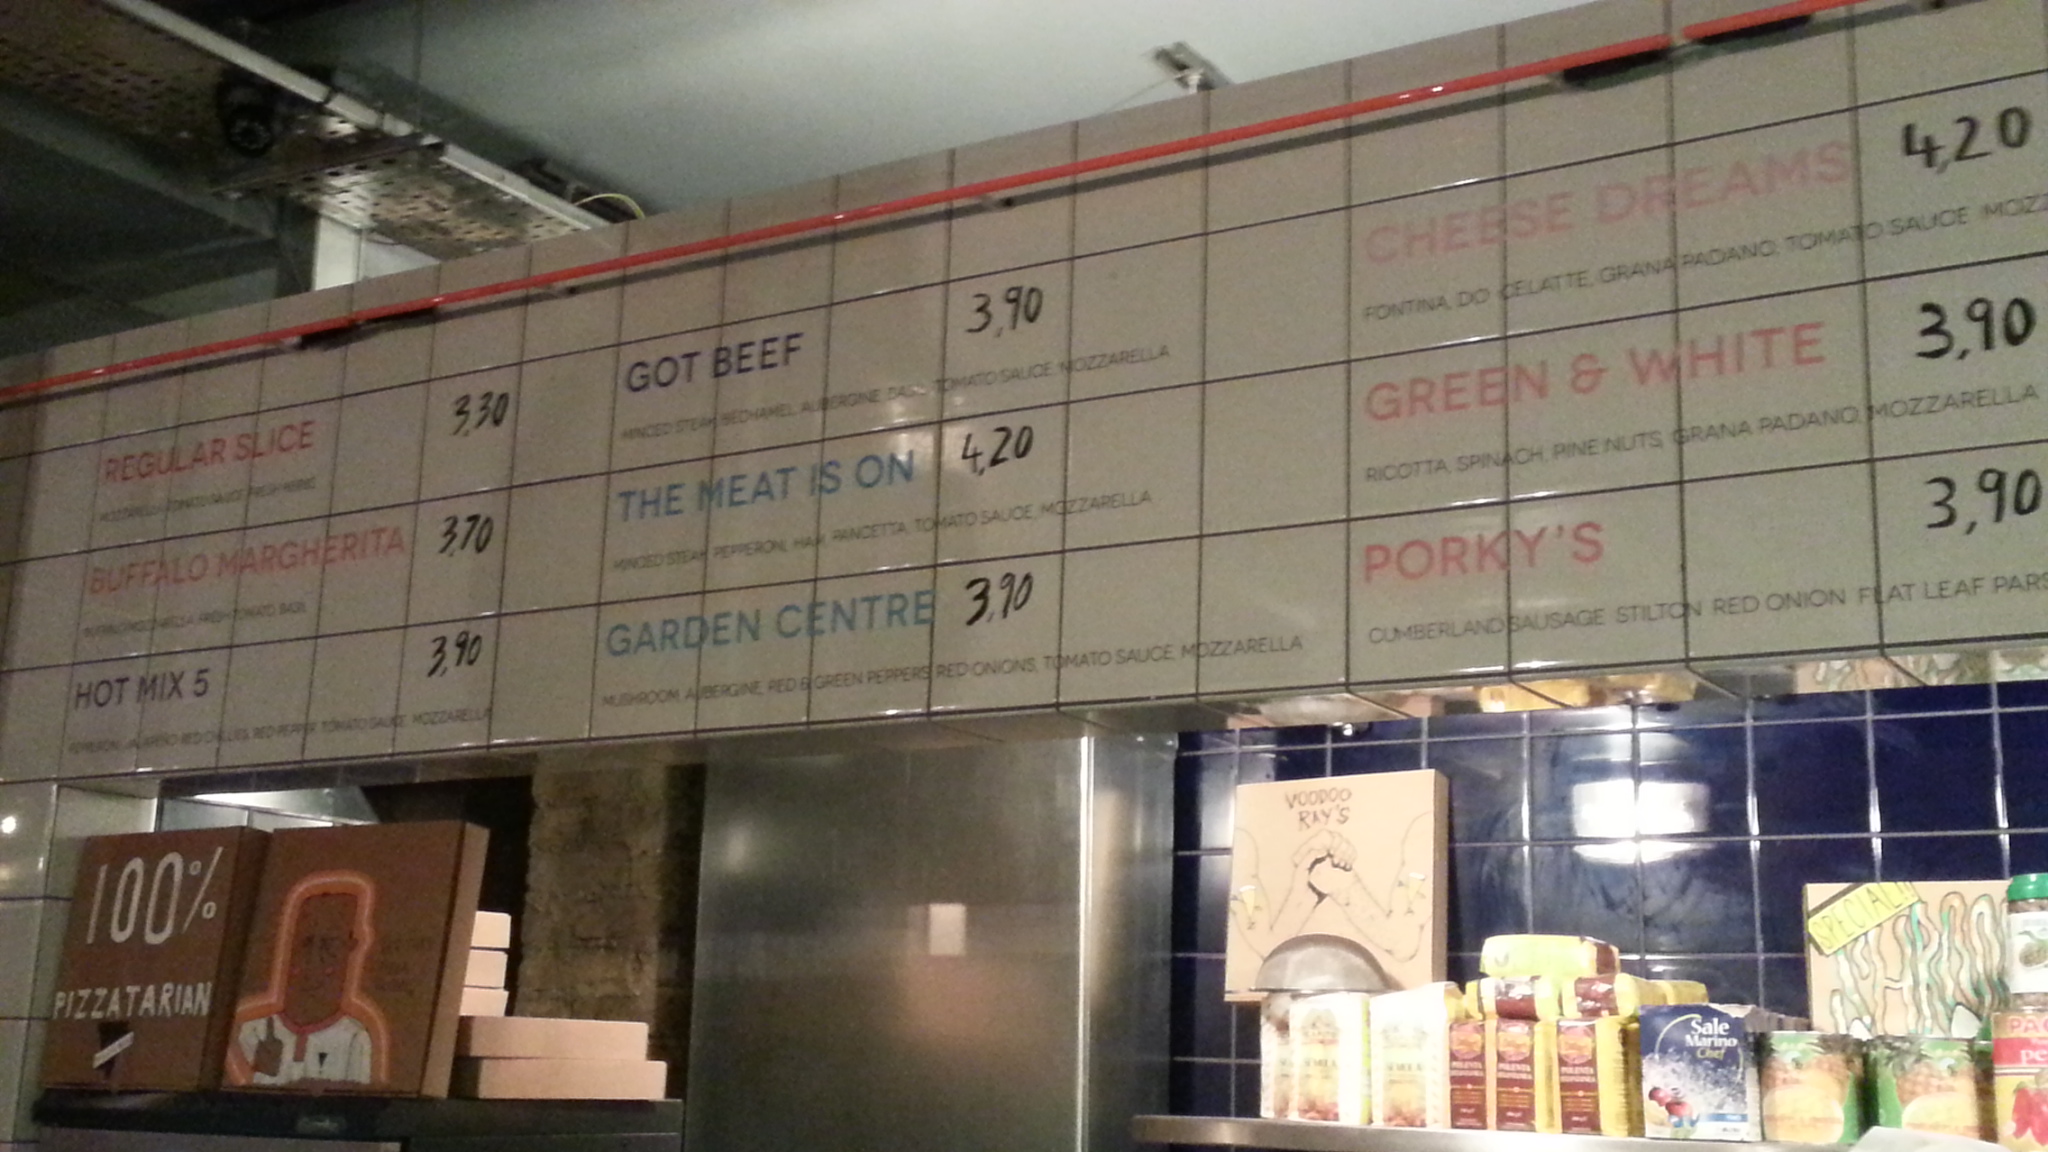 REGULAR SLICE 3,30
MOZZARELLA, TOMATO SAUCE, FRESH HERBS
BUFFALO MARGHERITA 3,70
BUFFALO MOZZARELLA, FRESH TOMATO, BASIL
HOT MIX 5 3,90
PEPPERONI, JALAPENO RED CHILLIES, RED PEPPER, TOMATO SAUCE, MOZZARELLA
GOT BEEF 3,90
MINCED STEAK, BECHAMEL, AUBERGINE, BASIL, TOMATO SAUCE, MOZZARELLA
THE MEAT IS ON 4,20
MINCED STEAK, PEPPERONI, HAM, PANCETTA, TOMATO SAUCE, MOZZARELLA
GARDEN CENTRE 3,90
MUSHROOM, AUBERGINE, RED & GREEN PEPPERS, RED ONIONS, TOMATO SAUCE, MOZZARELLA
CHEESE DREAMS 4,20
FONTINA, DOLCELATTE, GRANA PADANO, TOMATO SAUCE MOZZ
GREEN & WHITE 3,90
RICOTTA, SPINACH, PINE NUTS, GRANA PADANO, MOZZARELLA
PORKY'S 3,90
CUMBERLAND SAUSAGE STILTON RED ONION FLAT LEAF PARS
100%
PIZZATARIAN
VOODOO
RAY'S
POLENTA
POLENTA
POLENTA
Sale
Marino
Chef